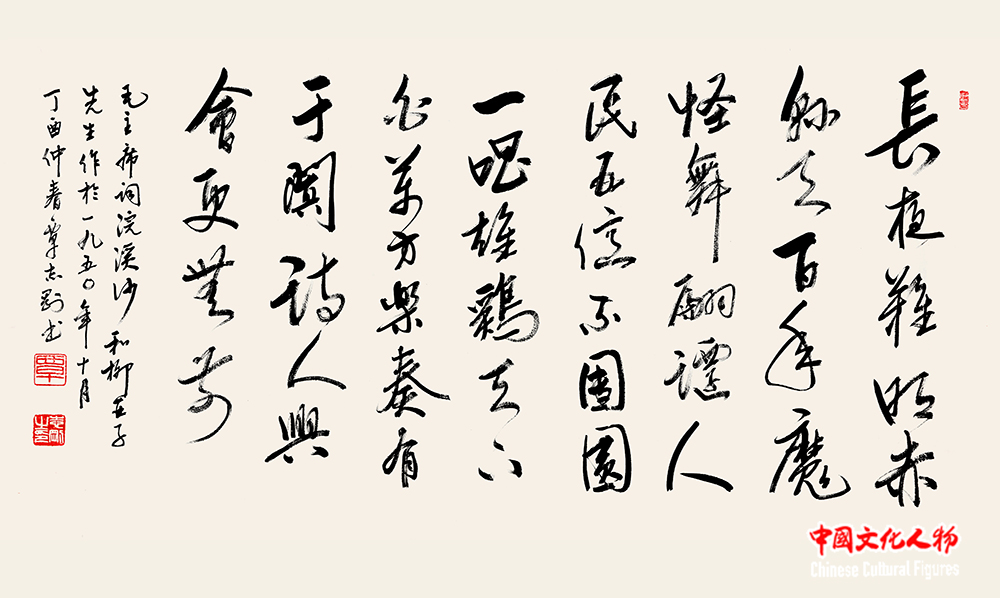 長夜難明赤
縣天百年魔
怪舞翩躚人
民五億不團圓
一唱雄鷄天下
白萬方樂奏有
于闐詩人興
會更無前
毛主席詞浣溪沙和柳亞子
先生作於一九五〇年十月
丁酉仲春覃志剛書
中國文化人物
Chinese Cultural Figures